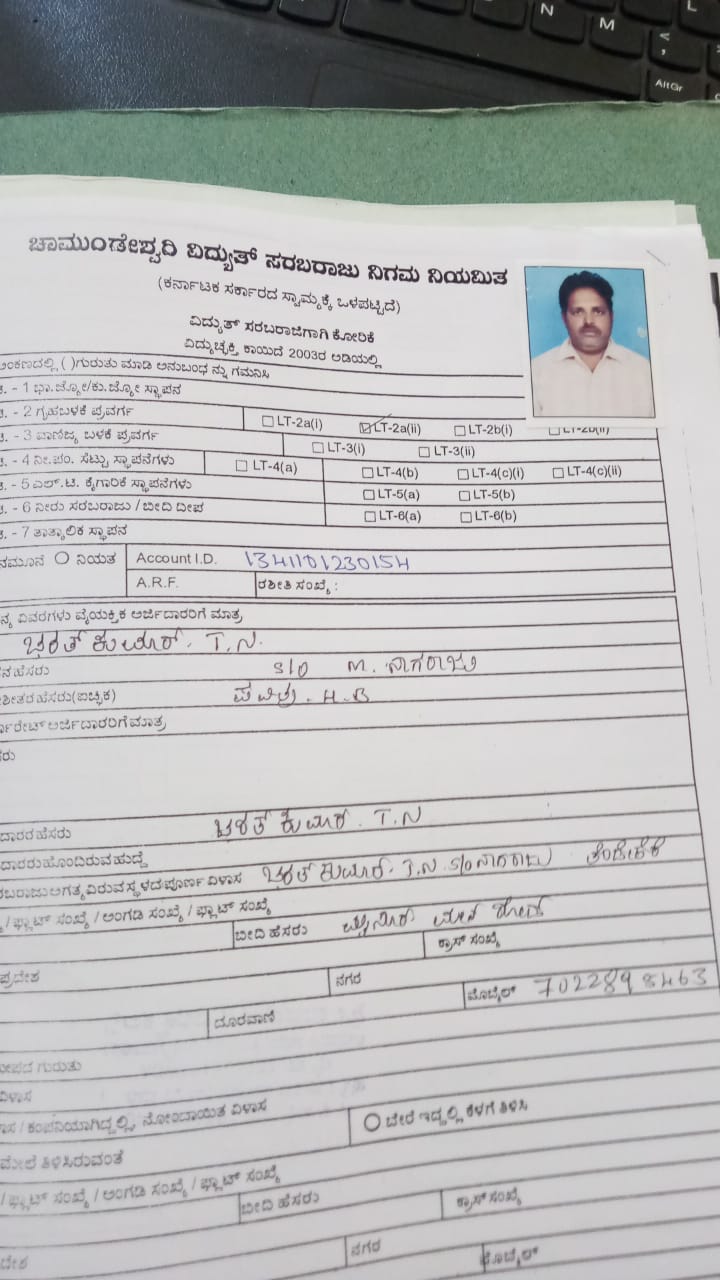 N M L AltGr
ಚಾಮುಂಡೇಶ್ವರಿ ವಿದ್ಯುತ್ ಸರಬರಾಜು ನಿಗಮ ನಿಯಮಿತ
(ಕರ್ನಾಟಕ ಸರ್ಕಾರದ ಸ್ವಾಮ್ಯಕ್ಕೆ ಒಳಪಟ್ಟಿದೆ)
ವಿದ್ಯುತ್ ಸರಬರಾಜಿಗಾಗಿ ಕೋರಿಕೆ
ವಿದ್ಯುಚ್ಛಕ್ತಿ ಕಾಯಿದೆ 2003ರ ಅಡಿಯಲ್ಲಿ
ಅಂಕಣದಲ್ಲಿ ( )ಗುರುತು ಮಾಡಿ ಅನುಬಂಧ ನ್ನು ಗಮನಿಸಿ
- 1 ಭಾ.ಜ್ಯೋ/ಕು.ಜ್ಯೋ ಸ್ಥಾಪನ
- 2 ಗೃಹಬಳಕೆ ಪ್ರವರ್ಗ LT-2a(i) LT-2a(ii) LT-2b(i) LT-2b(ii)
- 3 ವಾಣಿಜ್ಯ ಬಳಕೆ ಪ್ರವರ್ಗ LT-3(i) LT-3(ii)
- 4 ನೀ.ಪಂ. ಸೆಟ್ಟು ಸ್ಥಾಪನೆಗಳು LT-4(a) LT-4(b) LT-4(c)(i) LT-4(c)(ii)
- 5 ಎಲ್.ಟಿ. ಕೈಗಾರಿಕೆ ಸ್ಥಾಪನೆಗಳು LT-5(a) LT-5(b)
- 6 ನೀರು ಸರಬರಾಜು / ಬೀದಿ ದೀಪ LT-6(a) LT-6(b)
- 7 ತಾತ್ಕಾಲಿಕ ಸ್ಥಾಪನ
ನಮೂನೆ ನಿಯತ Account I.D. 1341101230154
A.R.F. ರಶೀತಿ ಸಂಖ್ಯೆ :
ವಿವರಗಳು ವೈಯಕ್ತಿಕ ಅರ್ಜಿದಾರರಿಗೆ ಮಾತ್ರ
ಭರತ್ ಕುಮಾರ್. T.N.
ಹೆಸರು S/o M. ನಾಗರಾಜು
ಹೆಸರು(ಐಚ್ಛಿಕ) ಪವಿತ್ರ. H.B
ಅರ್ಜಿದಾರರಿಗೆ ಮಾತ್ರ
ದಾರರ ಹೆಸರು ಭರತ್ ಕುಮಾರ್. T.N
ದಾರರು ಹೊಂದಿರುವ ಹುದ್ದೆ
ಅಗತ್ಯವಿರುವ ಸ್ಥಳದ ಪೂರ್ಣ ವಿಳಾಸ ಭರತ್ ಕುಮಾರ್. T.N. S/o ನಾಗರಾಜು
/ ಫ್ಲಾಟ್ ಸಂಖ್ಯೆ / ಅಂಗಡಿ ಸಂಖ್ಯೆ / ಪ್ಲಾಟ್ ಸಂಖ್ಯೆ
ಬೀದಿ ಹೆಸರು ಮೈಸೂರು ಮೇನ್ ರೋಡ್ ಕ್ರಾಸ್ ಸಂಖ್ಯೆ
ಪ್ರದೇಶ ನಗರ ಮೊಬೈಲ್ 7022898463
ದೂರವಾಣಿ
ಗುರುತು
ವಿಳಾಸ
/ ಕಂಪನಿಯಾಗಿದ್ದಲ್ಲಿ, ನೋಂದಾಯಿತ ವಿಳಾಸ ಬೇರೆ ಇದ್ದಲ್ಲಿ ಕೆಳಗೆ ತಿಳಿಸಿ
ಮೇಲೆ ತಿಳಿಸಿರುವಂತೆ
/ ಫ್ಲಾಟ್ ಸಂಖ್ಯೆ / ಅಂಗಡಿ ಸಂಖ್ಯೆ / ಪ್ಲಾಟ್ ಸಂಖ್ಯೆ
ಬೀದಿ ಹೆಸರು ಕ್ರಾಸ್ ಸಂಖ್ಯೆ
ನಗರ ಮೊಬೈಲ್